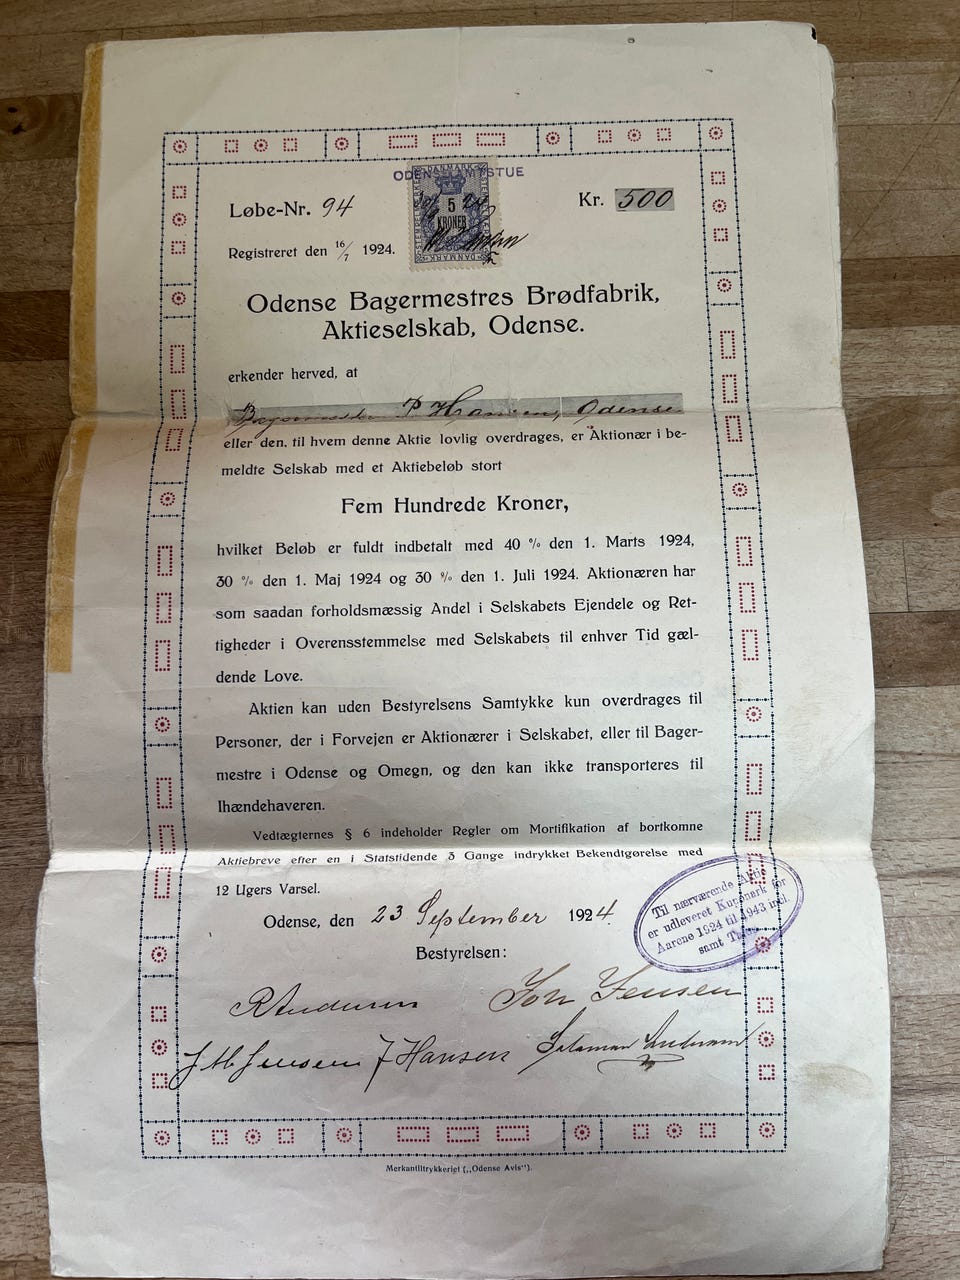 ODENSE AMTSTUE
DANMARK
5
KRONER
Løbe-Nr. 94
Kr. 500
Registreret den 16/7 1924.
Odense Bagermestres Brødfabrik,
Aktieselskab, Odense.
erkender herved, at
Bagermester P Hansen, Odense
eller den, til hvem denne Aktie lovlig overdrages, er Aktionær i be-
meldte Selskab med et Aktiebeløb stort
Fem Hundrede Kroner,
hvilket Beløb er fuldt indbetalt med 40 % den 1. Marts 1924,
30 % den 1. Maj 1924 og 30 % den 1. Juli 1924. Aktionæren har
som saadan forholdsmæssig Andel i Selskabets Ejendele og Ret-
tigheder i Overensstemmelse med Selskabets til enhver Tid gæl-
dende Love.
Aktien kan uden Bestyrelsens Samtykke kun overdrages til
Personer, der i Forvejen er Aktionærer i Selskabet, eller til Bager-
mestre i Odense og Omegn, og den kan ikke transporteres til
Ihændehaveren.
Vedtægternes § 6 indeholder Regler om Mortifikation af bortkomne
Aktiebreve efter en i Statstidende 3 Gange indrykket Bekendtgørelse med
12 Ugers Varsel.
Odense, den 23 September 1924
Til nærværende Aktie
er udleveret Kuponark for
Aarene 1924 til 1943 incl.
samt
Bestyrelsen:
R Andersen
Joh Jensen
J M Jensen
J Hansen
Salomon Andersen
Merkantiltrykkeriet („Odense Avis").